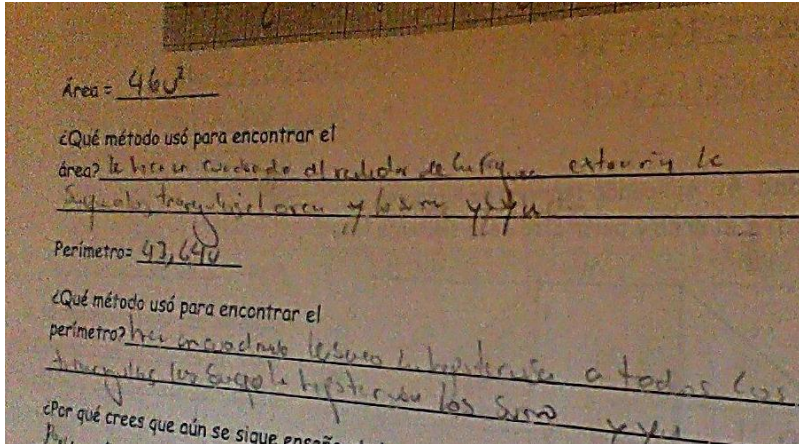 Área = 46u²
¿Qué método usó para encontrar el
área? le hice un cuadrado al rededor de la figura
y lo sumo y ya
Perímetro= 43,64u
¿Qué método usó para encontrar el
perímetro? hice un cuadrado le saco la hipotenusa a todos los
triangulos los saco la hipotenusa los sumo y ya
¿Por qué crees que aún se sigue